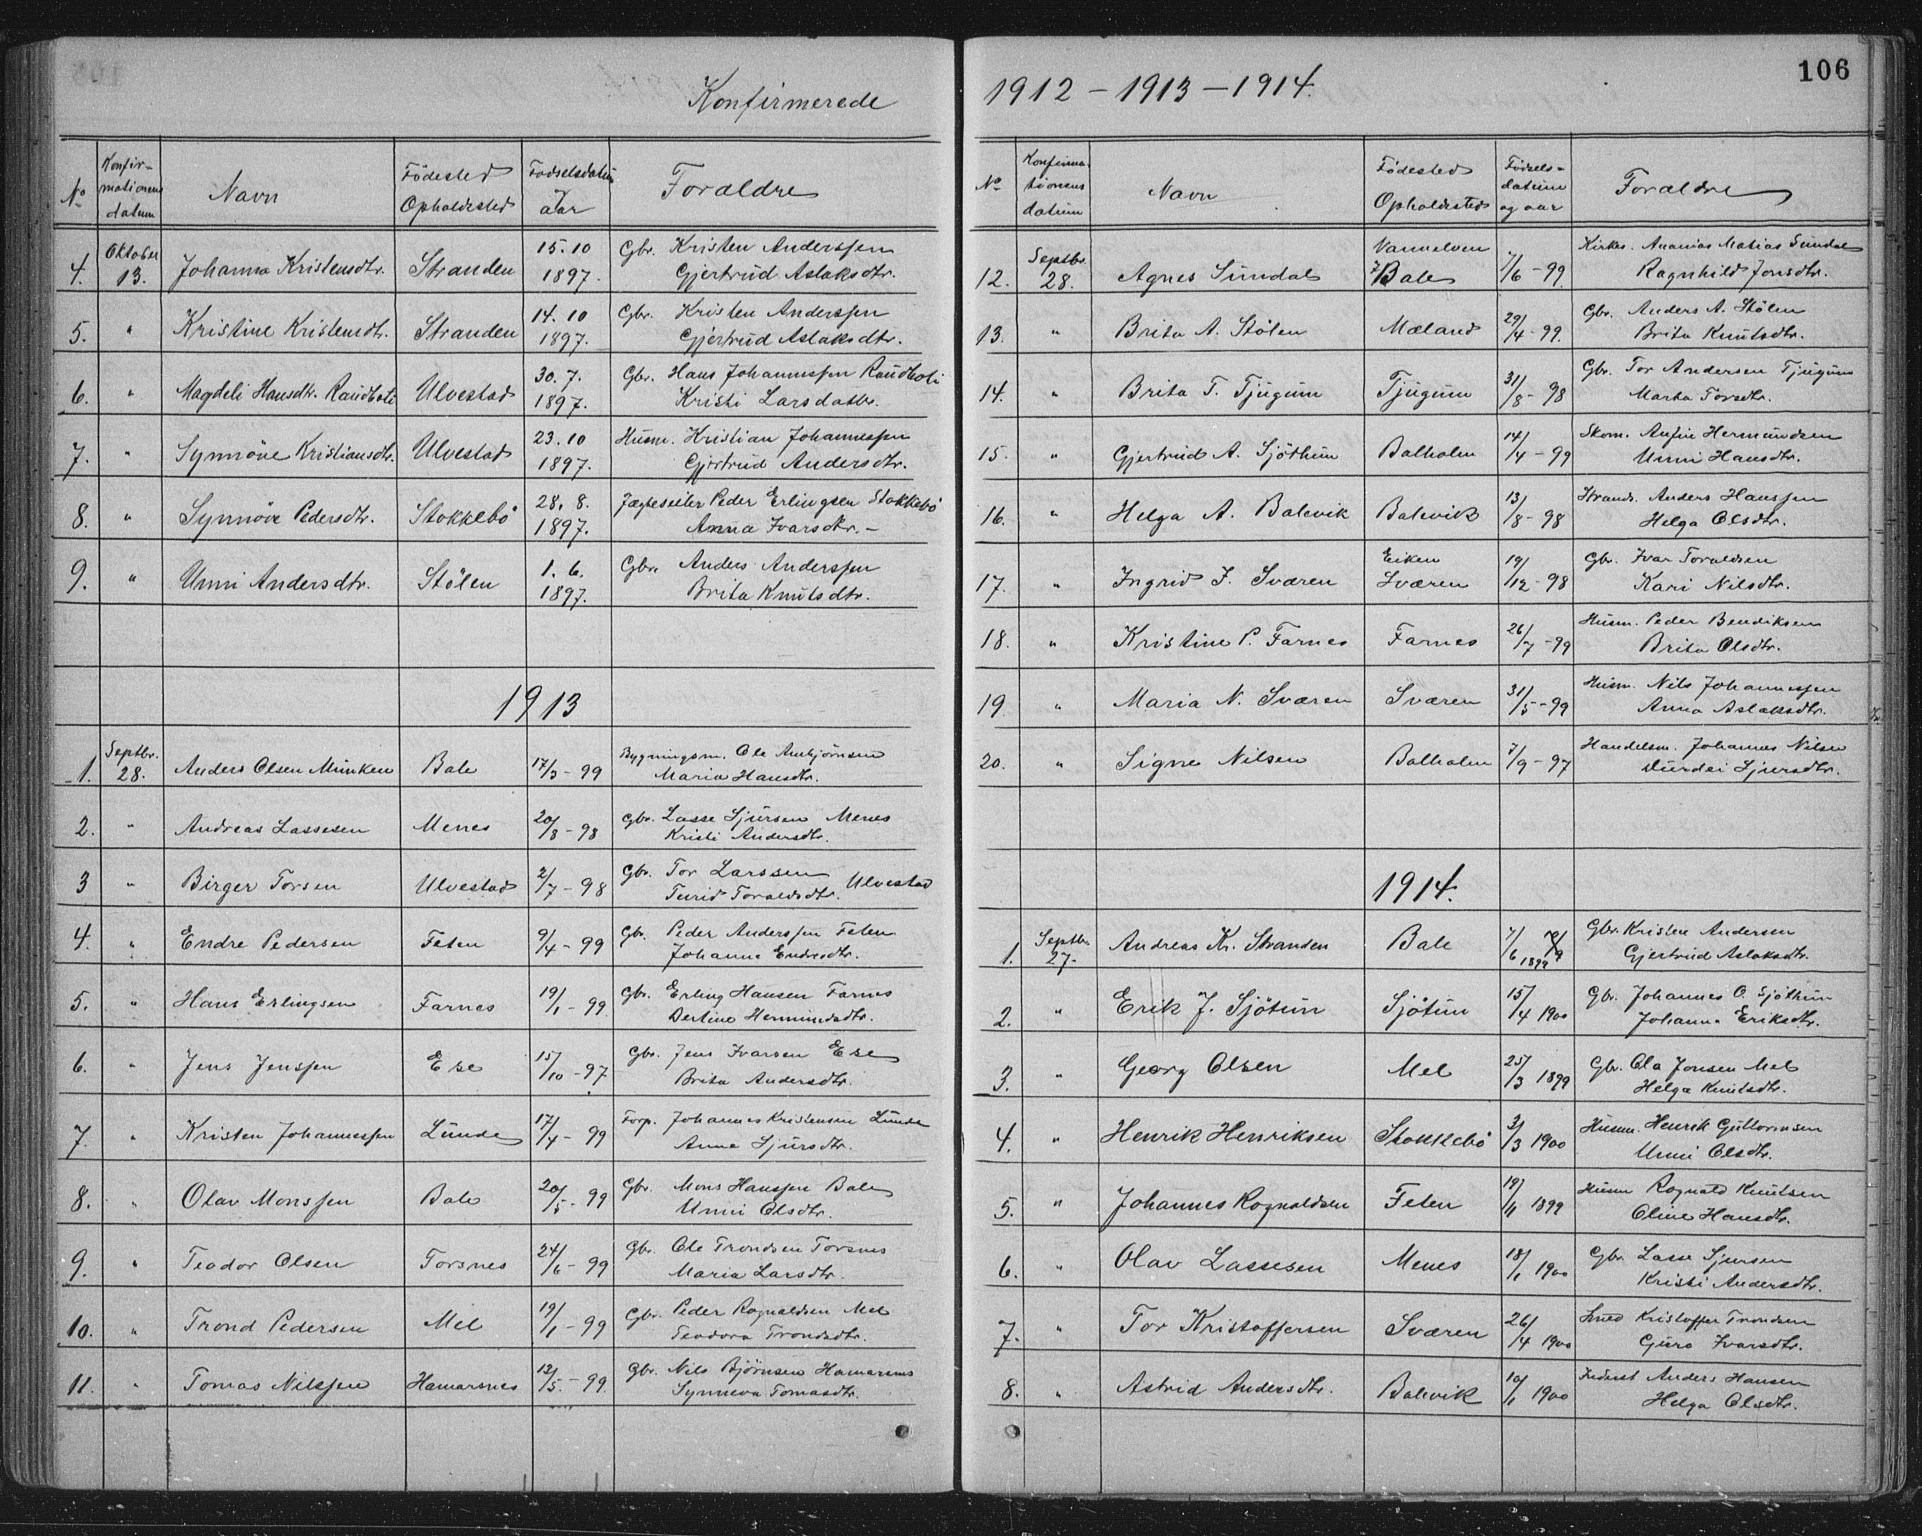 Konfirmerede
No
Konfir-
mationens
datum
Navn
Födested
Opholdssted
Fodselsdatum
og
aar
Foraldre
4. Oktober 13. Johanna Kristensdtr. Stranden 15.10 1897. Gbr. Kristen Anderssen
Gjertrud Aslaksdtr.
5. " Kristine Kristensdtr. Stranden 14.10 1897. Gbr. Kristen Anderssen
Gjertrud Aslaksdtr.
6. " Magdeli Hansdtr. Raudboti Ulvestad 30.7. 1897. Gbr. Hans Johannessen Raudboti
Kristi Larsdatr.
7. " Synnöve Kristiansdtr. Ulvestad 23.10 1897. Husm. Kristian Johannessen
Gjertrud Andersdtr.
8. " Synnöve Pedersdtr. Stokkebö 28.8. 1897. Jægteseiler Peder Erlingsen Stokkebö
Anna Ivarsdtr. -
9. " Unni Andersdtr. Stölen 1.6. 1897. Gbr. Anders Anderssen
Brita Knutsdtr.
1913
1. Septbr. 28. Anders Olsen Munken Bale 17/3-99 Bygningsm. Ole Ambjörnsen
Maria Hansdtr.
2. " Andreas Lassesen Menes 20/8-98 Gbr. Lasse Sjursen Menes
Kristi Andersdtr.
3 " Birger Torsen Ulvestad 2/7-98 Gbr. Tor Larssen Ulvestad
Turid Toraldsdtr.
4. " Endre Pedersen Feten 9/4-99 Gbr. Peder Anderssen Feten
Johanna Endresdtr.
5. " Hans Erlingsen Farnes 19/1-99 Gbr. Erling Hansen Farnes
Dertine Hermundsdtr.
6. " Jens Jenssen Ese 15/10-97 Gbr. Jens Ivarsen Ese
Brita Andersdtr.
7. " Kristen Johannessen Lunde 17/4-99 Forp. Johannes Kristensen Lunde
Anna Sjursdtr.
8. " Olav Monssen Bale 20/5-99 Gbr. Mons Hanssen Bale
Unni Olsdtr.
9. " Teodor Olsen Torsnes 24/6-99 Gbr. Ole Trondsen Torsnes
Maria Larsdtr.
10. " Trond Pedersen Mel 19/1-99 Gbr. Peder Rognaldsen Mel
Teodora Trondsdtr.
11. " Tomas Nilssen Hamarsnes 12/5.-99 Gbr. Nils Björnsen Hamarsnes
Synneva Tomasdtr.
1912-1913-1914.
106
No
Konfirma-
tionens
datum
Navn
Födested
Opholdssted
Födsels-
datum
og aar
Foraldre
12. Septbr. 28. Agnes Sundal Vannelven Bale 7/6-99 Kirkes. Ananias Matias Sundal
Ragnhild Jonsdtr.
13. " Brita A. Stölen Mæland 29/4-99. Gbr. Anders A. Stölen
Brita Knutsdtr.
14. " Brita T. Tjugum Tjugum 31/8-98 Gbr. Tor Andersen Tjugum
Marta Torsdtr.
15. " Gjertrud A. Sjöthun Balholm 14/4-99 Skom. Anfin Hermundsen
Unni Hansdtr.
16. " Helga A. Balevik Balevik 13/8-98 Strands. Anders Hanssen
Helga Olsdtr.
17. " Ingrid I. Sværen Eiken Sværen 19/12-98 Gbr. Ivar Toraldsen
Kari Nilsdtr.
18. " Kristine P. Farnes Farnes 26/7-99 Husm. Peder Bendiksen
Brita Olsdtr.
19. " Maria N. Sværen Sværen 31/5-99 Husm. Nils Johannessen
Anna Aslaksdtr.
20. " Signe Nilsen Balholm 7/9-97 Handelsm. Johannes Nilsen
Durdei Sjursdtr.
1914.
1. Septbr. 27. Andreas Kr. Stranden Bale 7/6 1899 Gbr. Kristen Andersen
Gjertrud Aslaksdtr.
2. " Erik J. Sjötun Sjötun 15/4 1900 Gbr. Johannes O. Sjöthun
Johanna Eriksdtr.
3. " Georg Olsen Mel 25/3 1899 Gbr. Ola Jonsen Mel
Helga Knutsdtr.
4. " Henrik Henriksen Stokkebö 3/3 1900 Husm. Henrik Guttormsen
Unni Olsdtr.
5. " Johannes Rognaldsen Feten 19/11 1899 Husm Rognald Knutsen
Oline Hansdtr.
6. " Olav Lassesen Menes 18/1 1900 Gbr. Lasse Sjursen
Kristi Andersdtr.
7. " Tor Kristoffersen Sværen 26/4 1900 Smed Kristoffer Trondsen
Guro Ivarsdtr.
8. " Astrid Andersdtr. Balevik 10/1 1900 Anders Hansen
Helga Olsdtr.